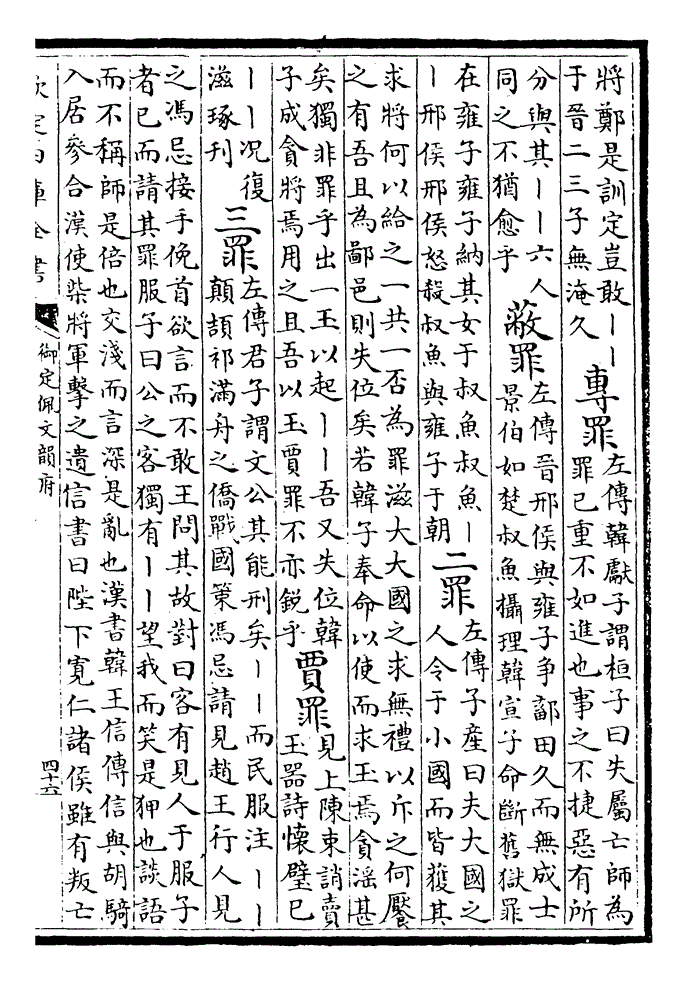 將鄭是訓定豈敢丨丨
于晉二三子無淹久
專罪
左傳韓獻子謂桓子曰失屬亡師為
罪已重不如進也事之不捷惡有所
分與其丨丨六人
同之不猶愈乎
蔽罪
左傳晉邢侯與雍子争鄐田久而無成士
景伯如楚叔魚攝理韓宣子命斷舊獄罪
在雍子雍子納其女于叔魚叔魚丨
丨邢侯邢侯怒殺叔魚與雍子于朝
二罪
左傳子產曰夫大國之
人令于小國而皆獲其
求將何以給之一共一否為罪滋大大國之求無禮以斥之何饜
之有吾且為鄙邑則失位矣若韓子奉命以使而求玉焉貪淫甚
矣獨非罪乎出一玉以起丨丨吾又失位韓
子成貪將焉用之且吾以玉賈罪不亦銳乎
賈罪
見上陳東誚賣
玉器詩懷璧已
丨丨况復
滋琢刋
三罪
左傳君子謂文公其能刑矣丨丨而民服注丨丨
顛頡祁滿舟之僑戰國策馮忌請見趙王行人見
之馮忌接手俛首欲言而不敢王問其故對曰客有見人于服子
者已而請其罪服子曰公之客獨有丨丨望我而笑是狎也談語
而不稱師是倍也交淺而言深是亂也漢書韓王信傳信與胡騎
入居參合漢使柴將軍擊之遺信書曰陛下寛仁諸侯雖有叛亡
欽定四庫全書
御定佩文韻府
四十六